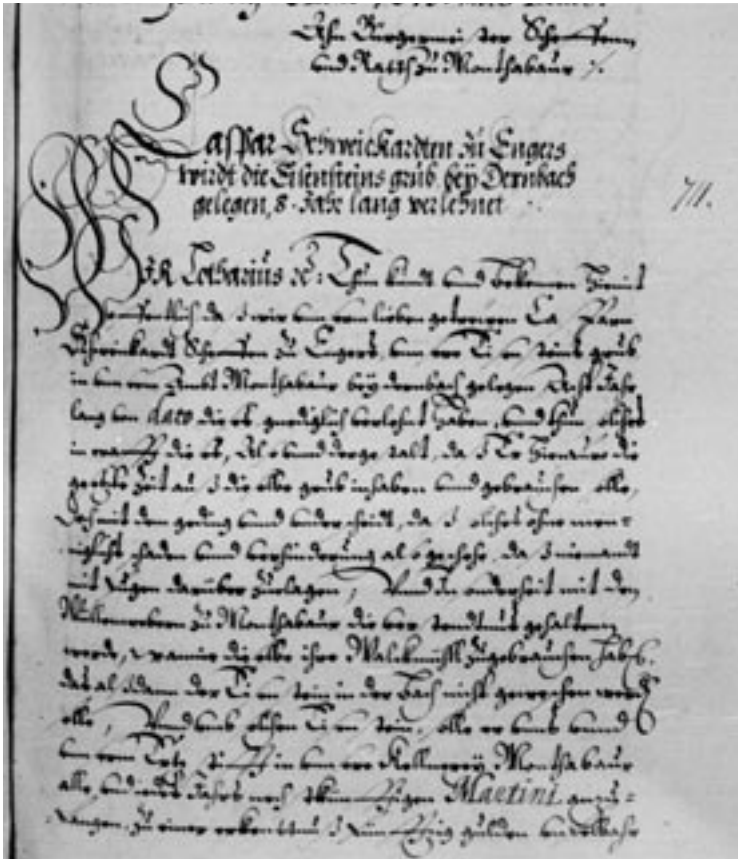 Ahn Bürgermeister Scheffenn
und Rath zu Monthabaur
Caspar Schweickardten zu Engers
wirdt die Eisensteins grub bey Dernbach
gelegen, 8. Jahr lang verlehnet
711.
Wir Lotharius Thun kundt und bekennen hiemit
offentlich das wir unserm lieben getrewen Casparn
Schweickardt Scheffen zu Engers, unser Eisensteins grub
in unserm Ambt Monthabaur bey dernbach gelegen Acht Jahr
lang von dato dieß gnediglich verlehnt haben, und thun solches
in krafft dieß, Also und dergestalt, das Er hienaus die
Zeit aus dieselbe grub inhaben und gebrauchen solle,
Doch mit dem geding und underscheidt, das solches ohne men=
niglichs schaden und verhinderung also geschehe, das niemandt
mit fugen darüber zuclagen, Und in sonderheit mit den
Wüllenwebern zu Monthabaur die verstendtnus gehalten
werde, wannie dieselbe ihre Walckmühl zugebrauchen haben,
das alsdann der Eisenstein in der Bach nicht gewaschen werden
solle, Und umb solchen Eisenstein, solle er uns unnd
unserm Ertzstifft in unser Kellnerey Monthabaur
alle und jedes Jahrs nechstkünfftigen Martini anzu=
fangen, zu einer erkenttnus gülden